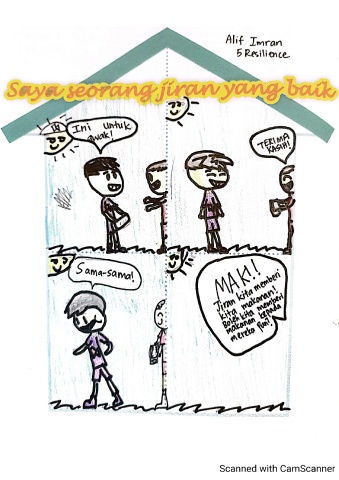 Alif Imran
5 Resilience
Saya seorang jiran yang baik
Ini untuk
awak!
TERIMA
KASIH!
Sama-sama!
MAK!!
Jiran kita memberi
kita makanan!
Boleh kita memberi
makanan kepada
mereka pun!
Scanned with CamScanner